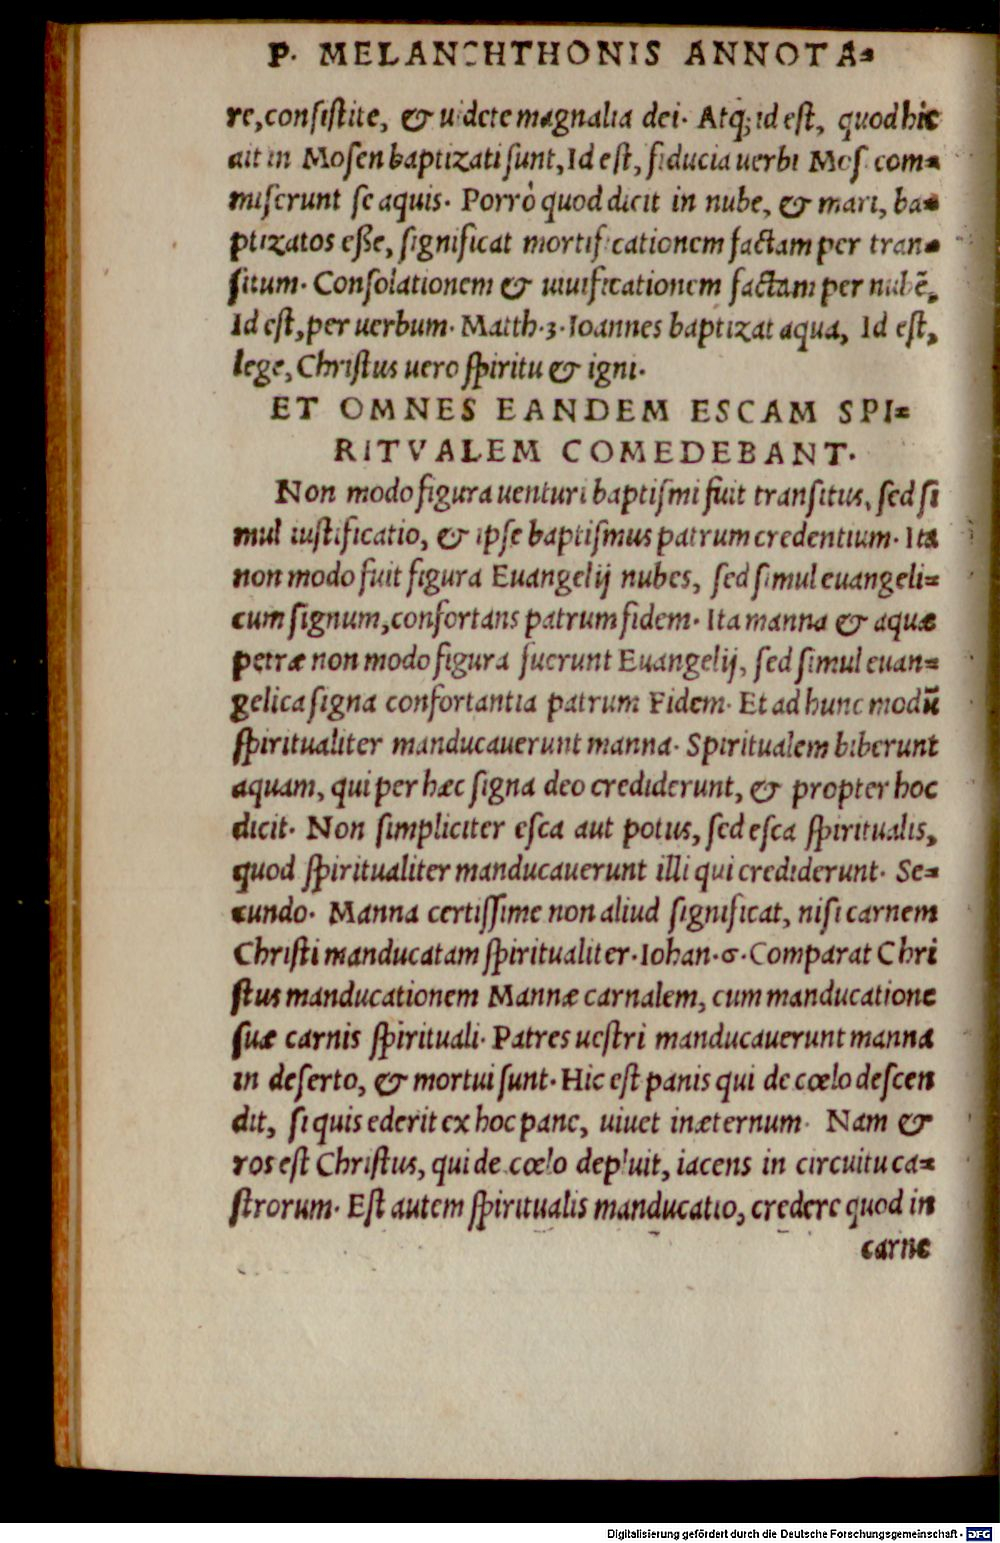 P. MELANCHTHONIS ANNOTA⸗
re, consistite, & uidete magnalia dei. Atq; id est, quod hic
ait in Mosen baptizati sunt, Id est, fiducia uerbi Mos. com⸗
miserunt se aquis. Porrò quod dicit in nube, & mari, ba⸗
ptizatos eße, significat mortificationem factam per tran⸗
situm. Consolationem & uiuificationem factam per nubē,
Id est, per uerbum. Matth.3. Ioannes baptizat aqua, Id est,
lege, Christus uero spiritu & igni.
ET OMNES EANDEM ESCAM SPI⸗
RITVALEM COMEDEBANT.
Non modo figura uenturi baptismi fuit transitus, sed si
mul iustificatio, & ipse baptismus patrum credentium. Ita
non modo fuit figura Euangelij nubes, sed simul euangeli⸗
cum signum, confortans patrum fidem. Ita manna & aquæ
petræ non modo figura fuerunt Euangelij, sed simul euan⸗
gelica signa confortantia patrum Fidem. Et ad hunc modū
spiritualiter manducauerunt manna. Spiritualem biberunt
aquam, qui per hæc signa deo crediderunt, & propter hoc
dicit. Non simpliciter esca aut potus, sed esca spiritualis,
quod spiritualiter manducauerunt illi qui crediderunt. Se⸗
cundo. Manna certissime non aliud significat, nisi carnem
Christi manducatam spiritualiter. Iohan.6. Comparat Chri
stus manducationem Mannæ carnalem, cum manducatione
suæ carnis spirituali. Patres uestri manducauerunt manna
in deserto, & mortui sunt. Hic est panis qui de cœlo descen
dit, si quis ederit ex hoc pane, uiuet in æternum. Nam &
ros est Christus, qui de cœlo depluit, iacens in circuitu ca⸗
strorum. Est autem spiritualis manducatio, credere quod in
carne
Digitalisierung gefördert durch die Deutsche Forschungsgemeinschaft - DFG